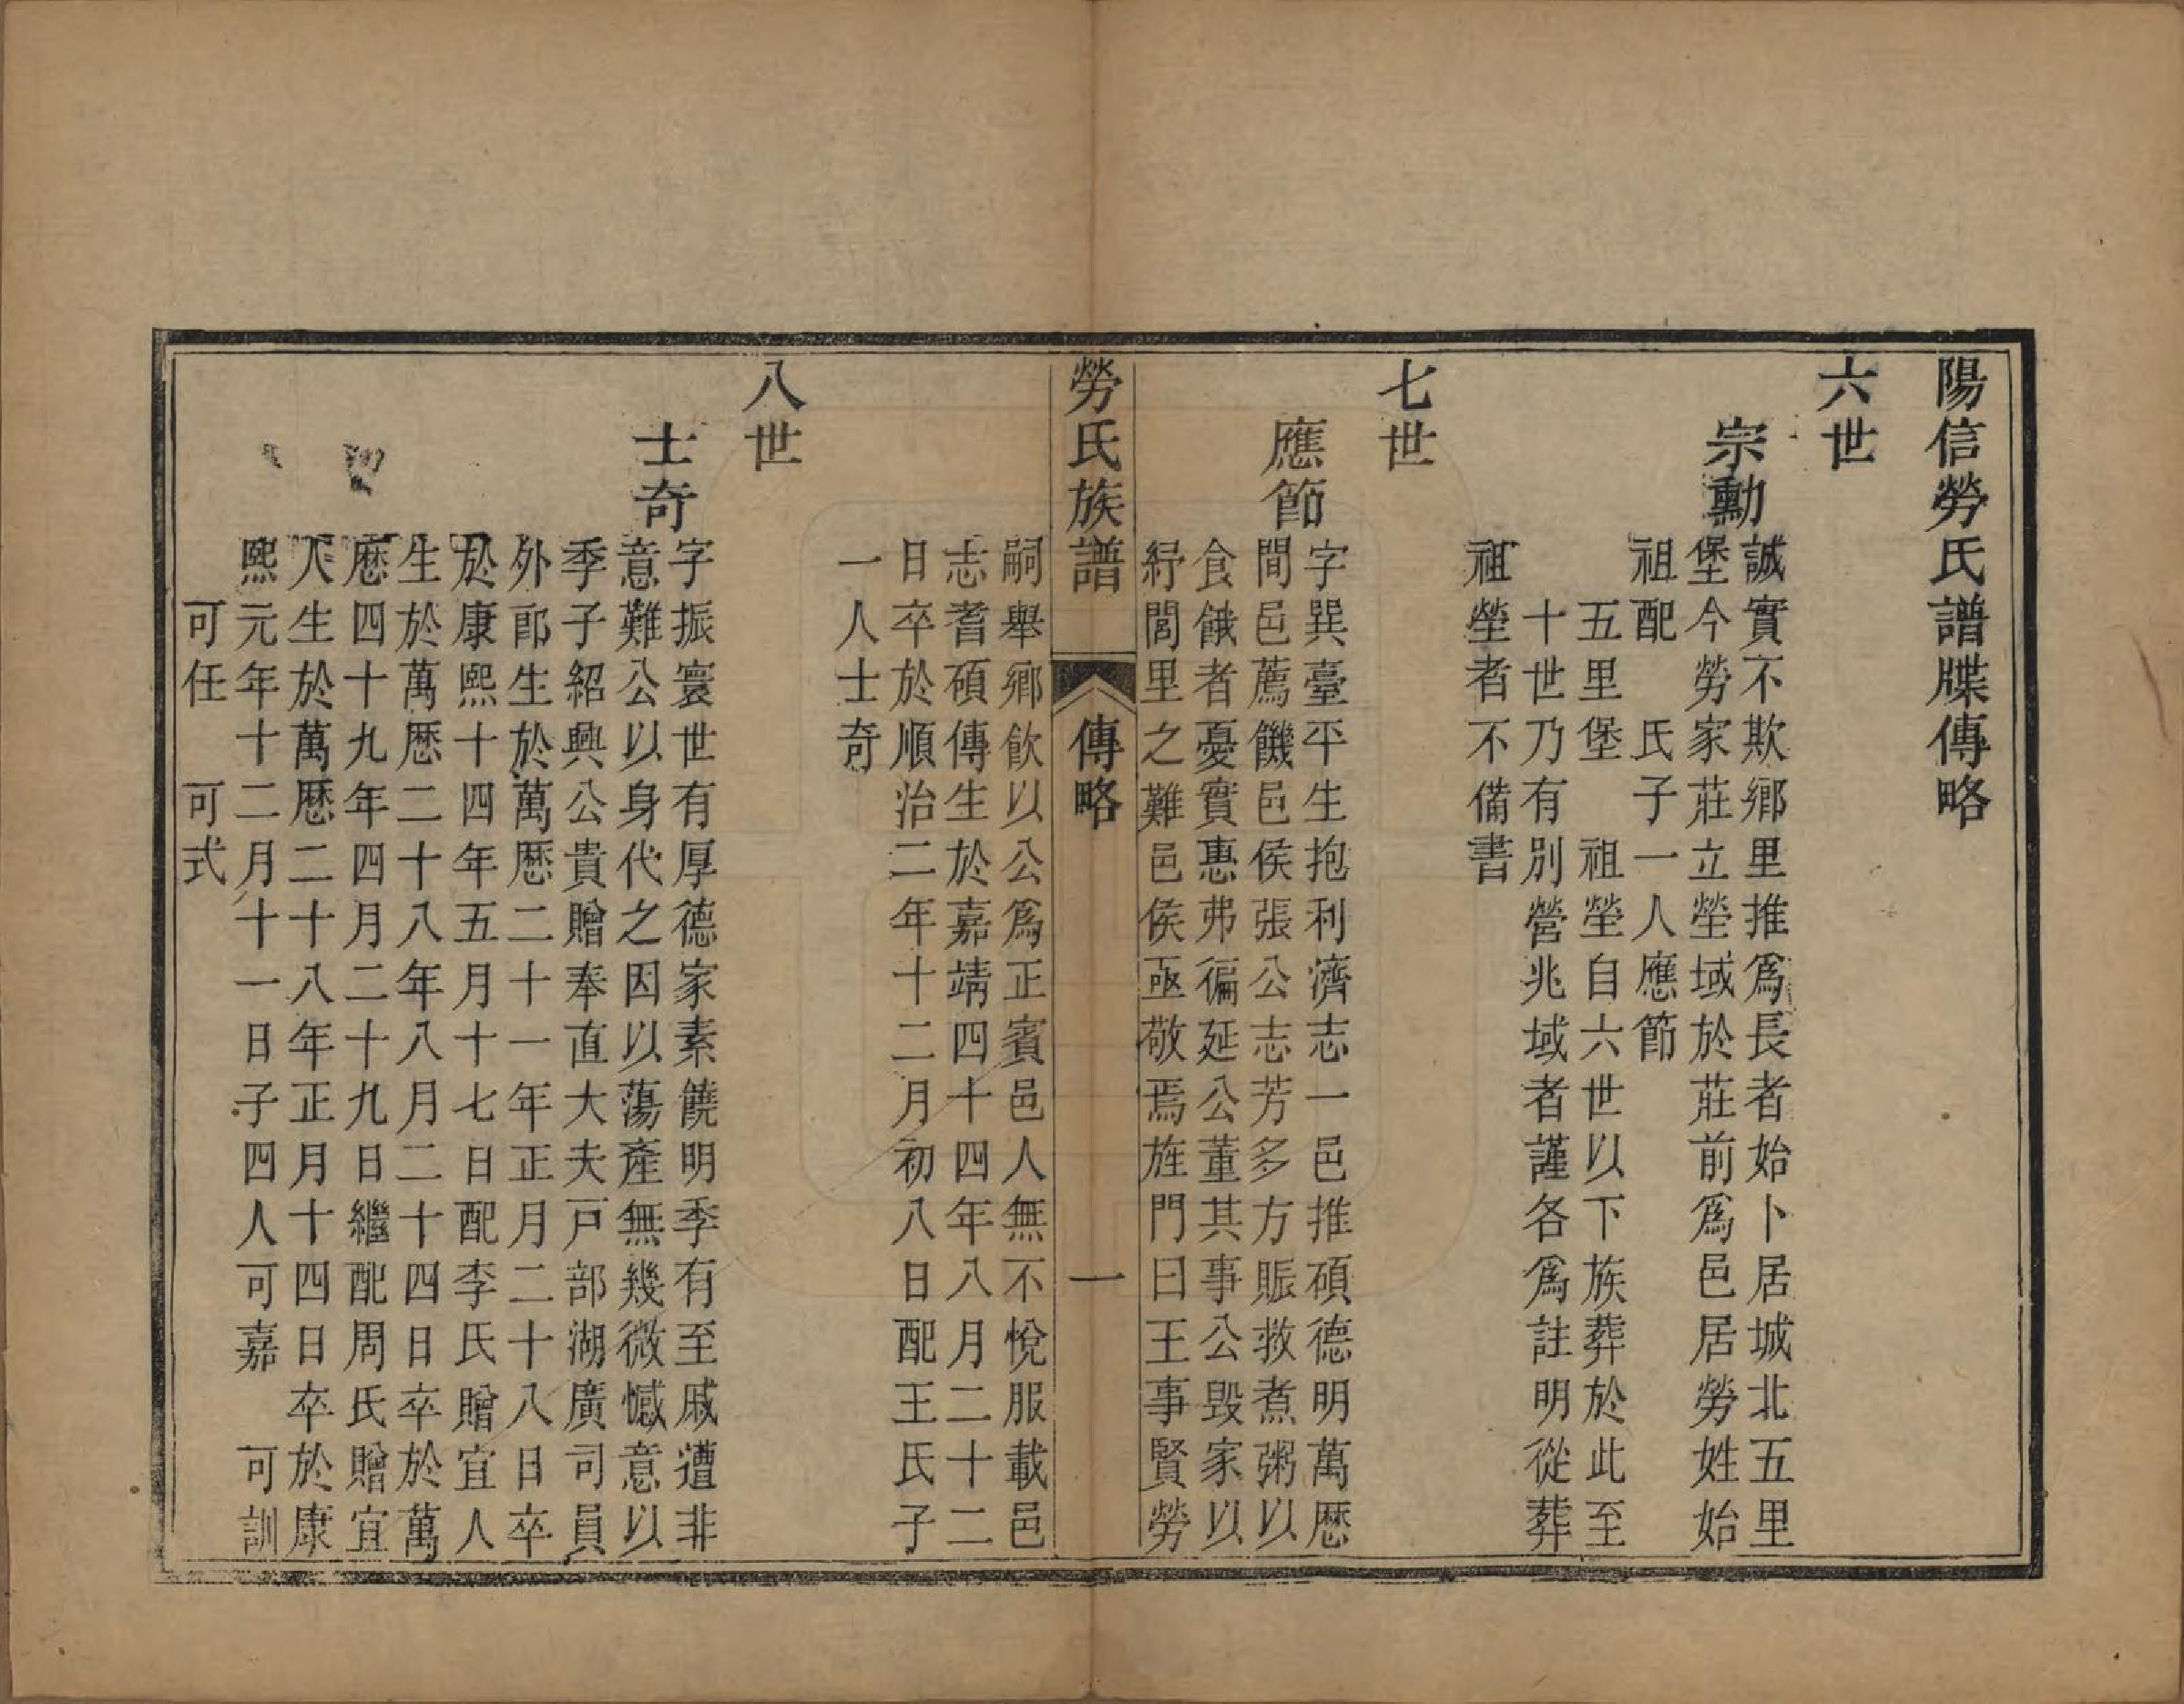 陽信勞氏譜牒傳略
六世
宗勳
誠實不欺鄉里推爲長者始卜居城北五里
堡今勞家莊立塋域於莊前爲邑居勞姓始
祖配　氏子一人應節
五里堡　祖塋自六世以下族葬於此至
十世乃有別營兆域者謹各爲註明從葬
祖塋者不備書
七世
應節
字巽臺平生抱利濟志一邑推碩德明萬厯
間邑薦饑邑侯張公志芳多方賑救煮粥以
食餓者憂實惠弗徧延公董其事公毀家以
紓閭里之難邑侯亟敬焉旌門曰王事賢勞
勞氏族譜　傳略　一
嗣舉鄉飲以公爲正賓邑人無不悅服載邑
志耆碩傳生於嘉靖四十四年八月二十二
日卒於順治二年十二月初八日配王氏子
一人士奇
八世
士奇
字振寰世有厚德家素饒明季有至戚遭非
意難公以身代之因以蕩產無幾微憾意以
季子紹興公貴贈奉直大夫戶部湖廣司員
外郎生於萬厯二十一年正月二十八日卒
於康熙十四年五月十七日配李氏贈宜人
生於萬厯二十八年八月二十四日卒於萬
厯四十九年四月二十九日繼配周氏贈宜
人生於萬厯二十八年正月十四日卒於康
熙元年十二月十一日子四人可嘉　可訓
可任　可式